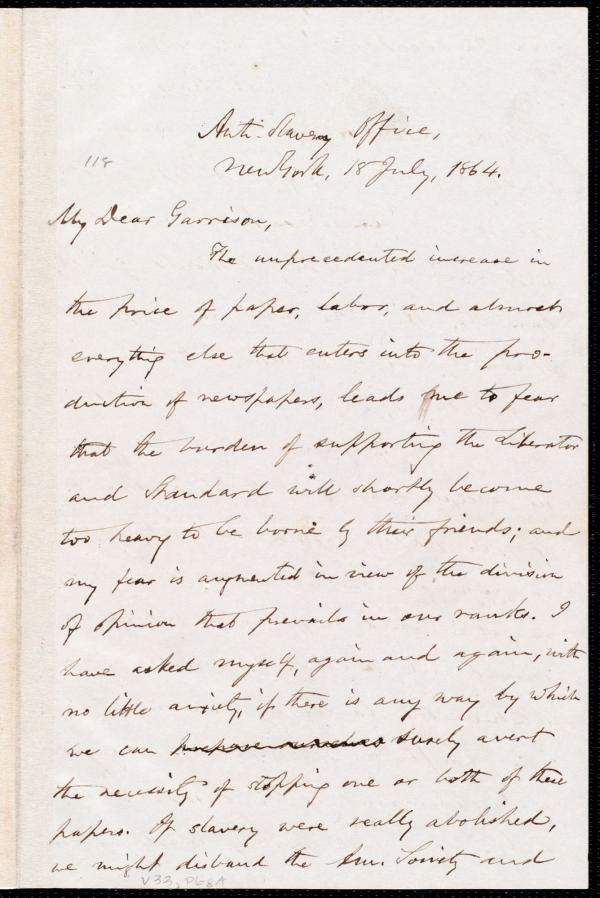 Anti-Slavery Office,
118
New York, 18 July, 1864.
My Dear Garrison,
The unprecedented increase in
the price of paper, labor, and almost
everything else that enters into the pro-
duction of newspapers, leads me to fear
that the burden of supporting the Liberator
and Standard will shortly become
too heavy to be borne by their friends; and
my fear is augmented in view of the division
of opinion that prevails in our ranks. I
have asked myself, again and again, with
no little anxiety, if there is any way by which
we can surely avert
the necessity of stopping one or both of these
papers. If slavery were really abolished,
we might disband the Am. Society and
V33, P68A